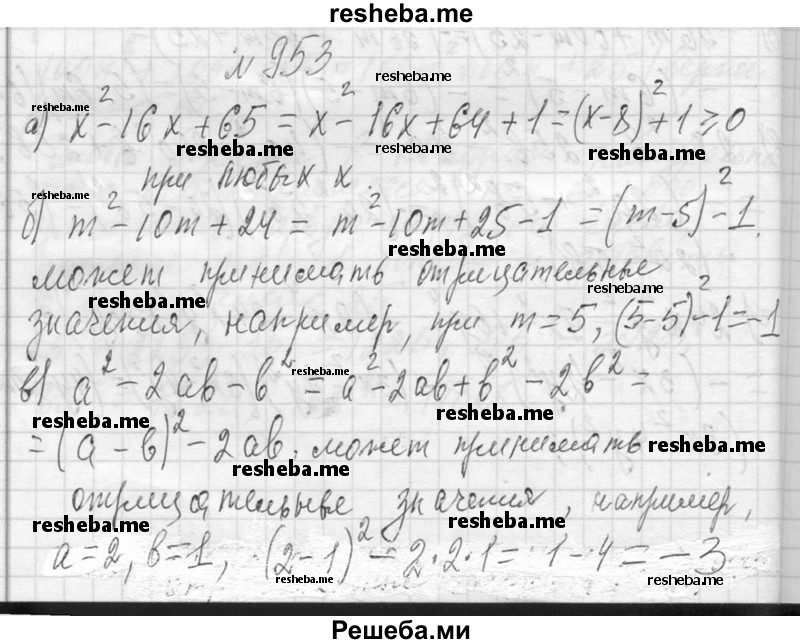 resheba.me
№ 953
resheba.me
resheba.me
а) x² - 16x + 65 = x² - 16x + 64 + 1 = (x-8)² + 1 ⩾ 0
resheba.me resheba.me resheba.me
при любых x.
resheba.me
б) m² - 10m + 24 = m² - 10m + 25 - 1 = (m-5)² - 1.
resheba.me
может принимать отрицательные
resheba.me resheba.me
значения, например, при m = 5, (5-5)² - 1 = -1
в) a² - 2ab - b² = a² - 2ab + b² - 2b² =
resheba.me
resheba.me resheba.me
= (a - b)² - 2ab. может принимать
resheba.me
resheba.me
отрицательные значения, например,
resheba.me resheba.me
a = 2, b = 1, (2-1)² - 2·2·1 = 1 - 4 = -3
resheba.me resheba.me
Решеба.ми